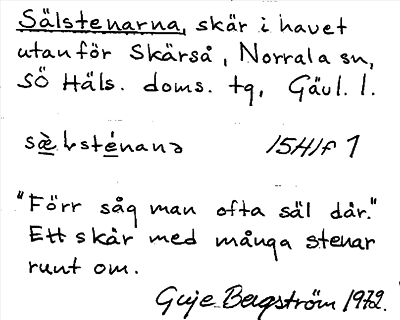 Sälstenarna, skär i havet
utanför Skärså, Norrala sn,
SÖ Häls. doms. tg, Gävl. l.
sæ̀ḷsténanə 15H1f 1
"Förr såg man ofta säl där."
Ett skär med många stenar
runt om.
Guje Bergström 1972.